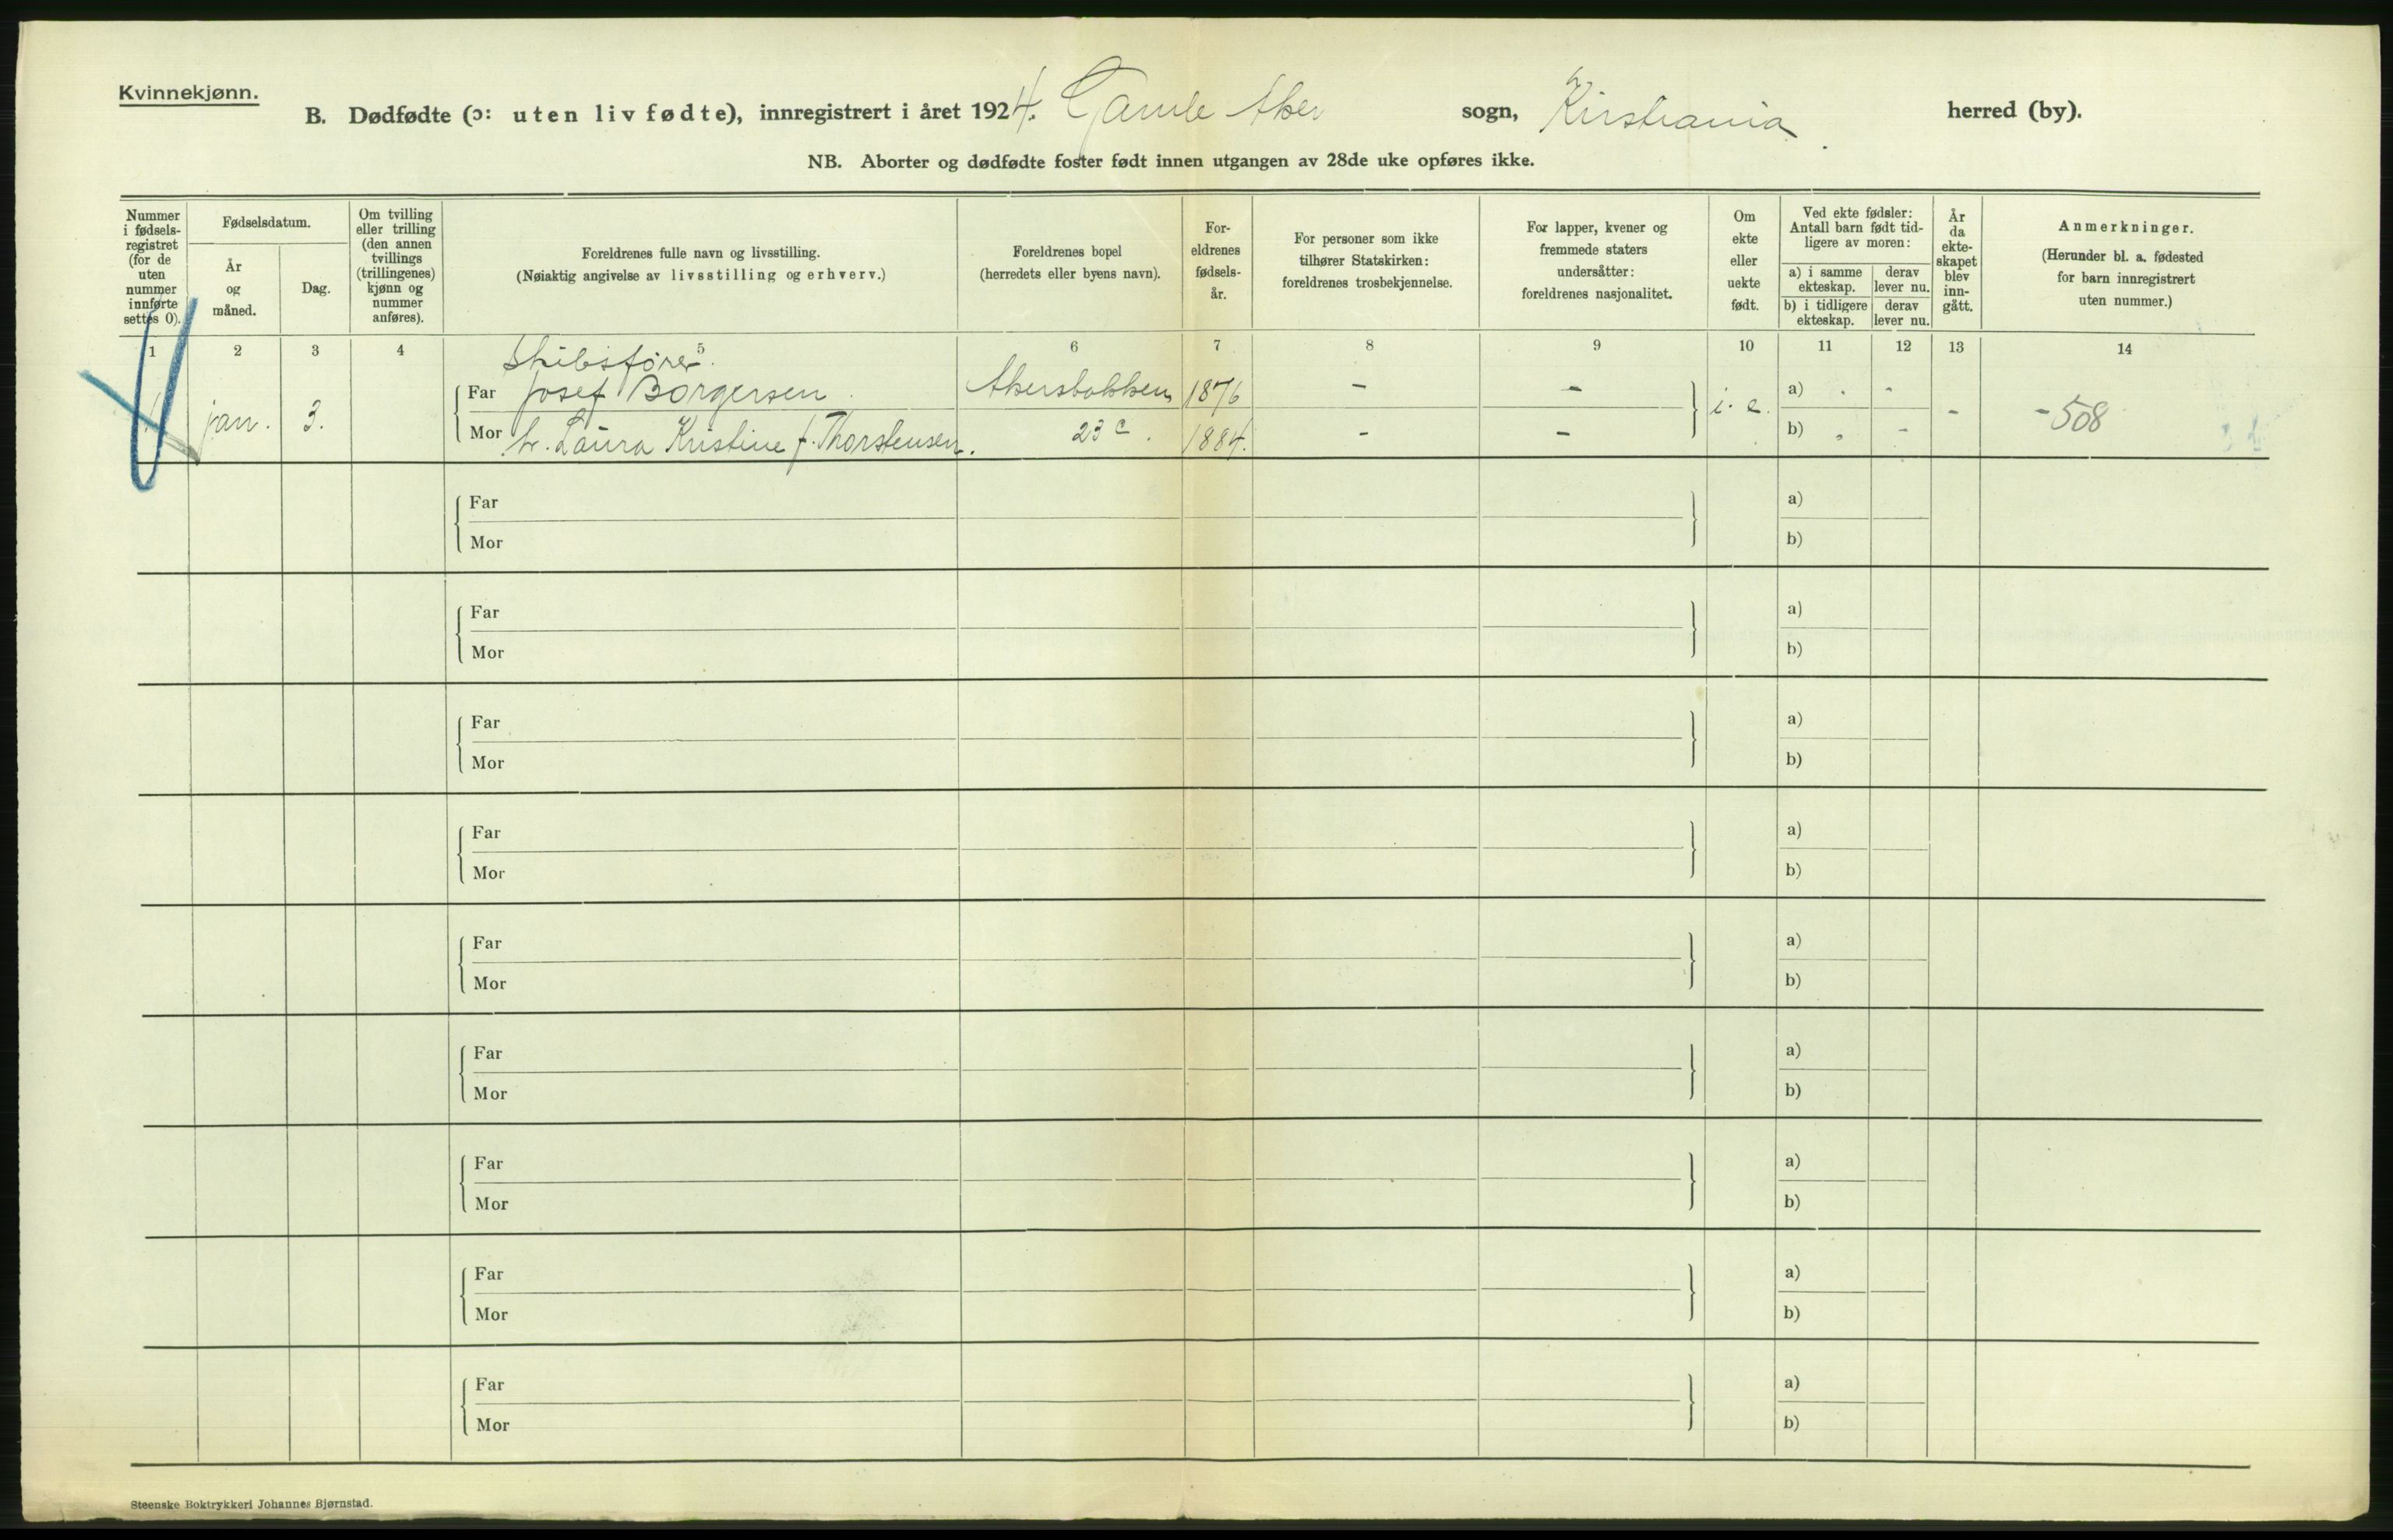 Kvinnekjønn.
B. Dødfødte (ɔ: uten liv fødte), innregistrert i året 1924. Gamle Aker sogn, Kirstiania herred (by).
NB. Aborter og dødfødte foster født innen utgangen av 28de uke opføres ikke.
Nummer
i fødsels-
registret
(for de
uten
nummer
innførte
settes 0).
Fødselsdatum.
År
og
måned.
Dag.
Om tvilling
eller trilling
(den annen
tvillings
(trillingenes)
kjønn og
nummer
anføres).
Foreldrenes fulle navn og livsstilling.
(Nøiaktig angivelse av livsstilling og erhverv.)
Foreldrenes bopel
(herredets eller byens navn).
For-
eldrenes
fødsels-
år.
For personer som ikke
tilhører Statskirken:
foreldrenes trosbekjennelse.
For lapper, kvener og
fremmede staters
undersåtter:
foreldrenes nasjonalitet.
Om
ekte
eller
uekte
født.
Ved ekte fødsler:
Antall barn født tid-
ligere av moren:
a) i samme
ekteskap.
derav
lever nu.
b) i tidligere
ekteskap.
derav
lever nu.
År
da
ekte-
skapet
blev
inn-
gått.
Anmerkninger.
(Herunder bl. a. fødested
for barn innregistrert
uten nummer.)
1 2 3 4 5 6 7 8 9 10 11 12 13 14
Skibsfører
Far Josef Borgersen. Akersbakken 1876 - - a) -
jan. 3. i. e. - -508
Mor h. Laura Kristine f. Thorstensen. 23 c. 1884. - - b) -
Far a)
Mor b)
Far a)
Mor b)
Far a)
Mor b)
Far a)
Mor b)
Far a)
Mor b)
Far a)
Mor b)
Far a)
Mor b)
Far a)
Mor b)
Far a)
Mor b)
Steenske Boktrykkeri Johannes Bjørnstad.